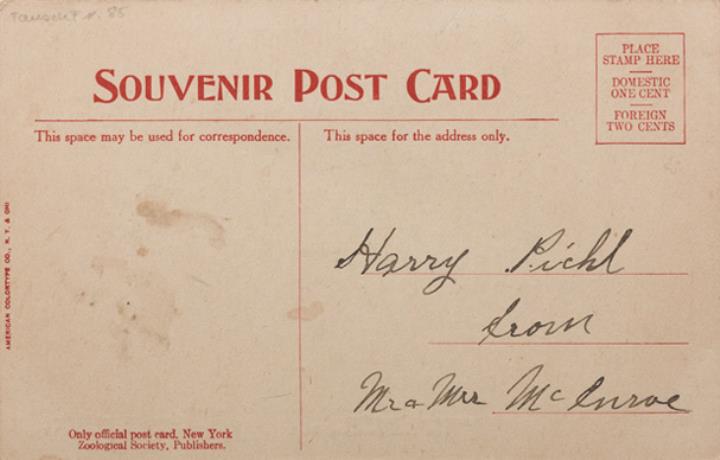 85
SOUVENIR POST CARD
PLACE
STAMP HERE
DOMESTIC
ONE CENT
FOREIGN
TWO CENTS
This space may be used for correspondence.
This space for the address only.
Harry Pichl
from
Mr & Mrs McInroe
AMERICAN COLORTYPE CO., N. Y. & CHI
Only official post card. New York
Zoological Society, Publishers.